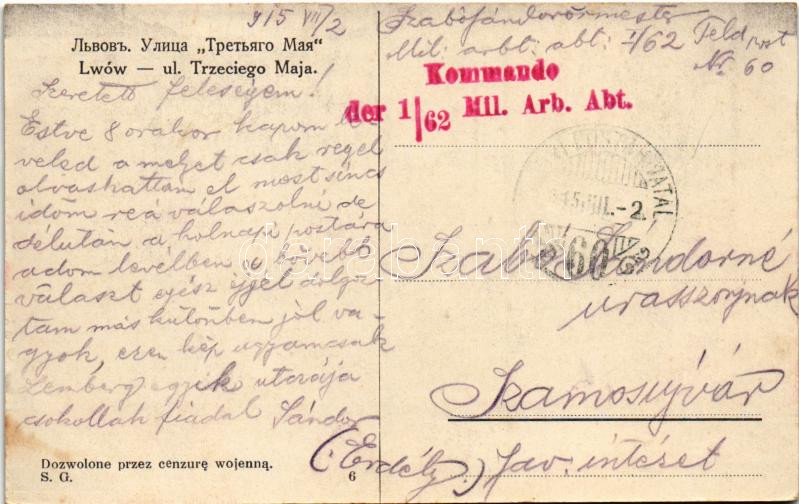 915 VII/2
Львовъ. Улица „Третьяго Мая“
Lwów — ul. Trzeciego Maja.
Szeretett feleségem!
Estve 8 orakor kapom le-
veled a melyet csak regel
olvashattam el most sincs
idöm reá válaszolni de
délután a holnapi postára
adom levélben a bövebb
választ egész éjjel dolgoz-
tam más külömben jól va-
gyok, ezen kép ugyamcsak
Lemberg egyik utczája
csokollak fiaddal Sándor
Dozwolone przez cenzurę wojenną.
S. G.
6
Szabó Sándor örmester
Mil: arbt: abt: 1/62 Feld post
Nr. 60
Kommando
der 1/62 Mil. Arb. Abt.
15 VII.-2.
60
Szabó Sándorné
urasszonynak
Szamosujvár
(Erdély.) Jav. intézet